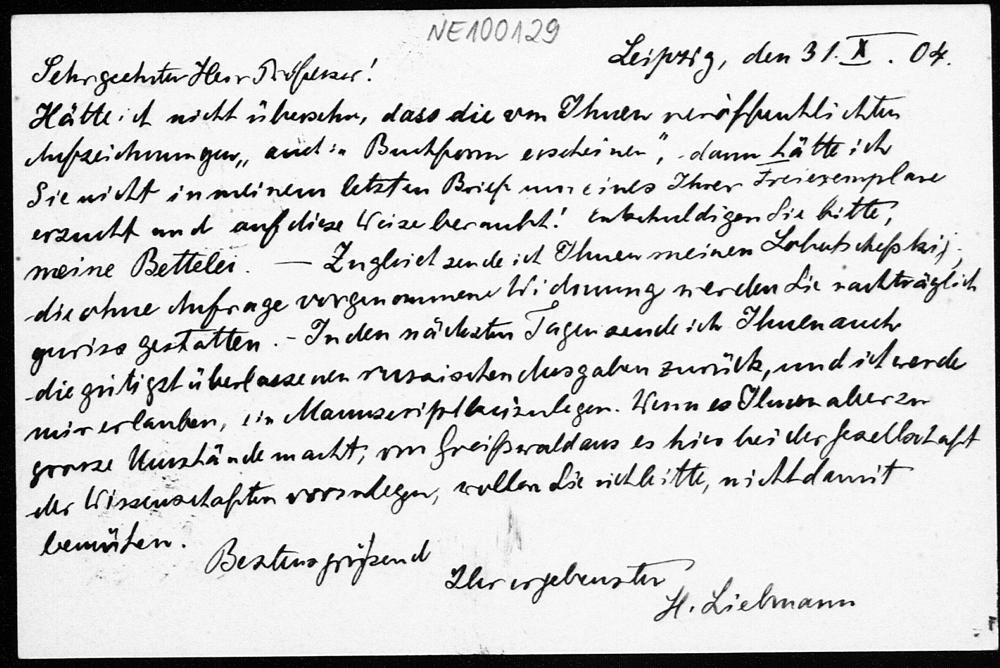 NE100129
Leipzig, den 31. X. 04.
Sehr geehrter Herr Professor!
Hätte ich nicht übersehn, dass die von Ihnen veröffentlichten
Aufzeichnungen „auch in Buchform erscheinen", dann hätte ich
Sie nicht in meinem letzten Brief um eines Ihrer Freiexemplare
ersucht und auf diese Weise beraubt! Entschuldigen Sie bitte,
meine Bettelei. — Zugleich sende ich Ihnen meinen Lobatschefskij;
die ohne Anfrage vorgenommene Widmung werden Sie nachträglich
gewiss gestatten. – In den nächsten Tagen sende ich Ihnen auch
die gütigst überlassenen russischen Ausgaben zurück, und ich werde
mir erlauben, ein Manuscript beizulegen. Wenn es Ihnen aber zu
grosse Umstände macht, von Greifswald aus es hier bei der Gesellschaft
der Wissenschaften vorzulegen, wollen Sie sich bitte, nicht damit
bemühen.
Bestens grüßend
Ihr ergebenster
H. Liebmann